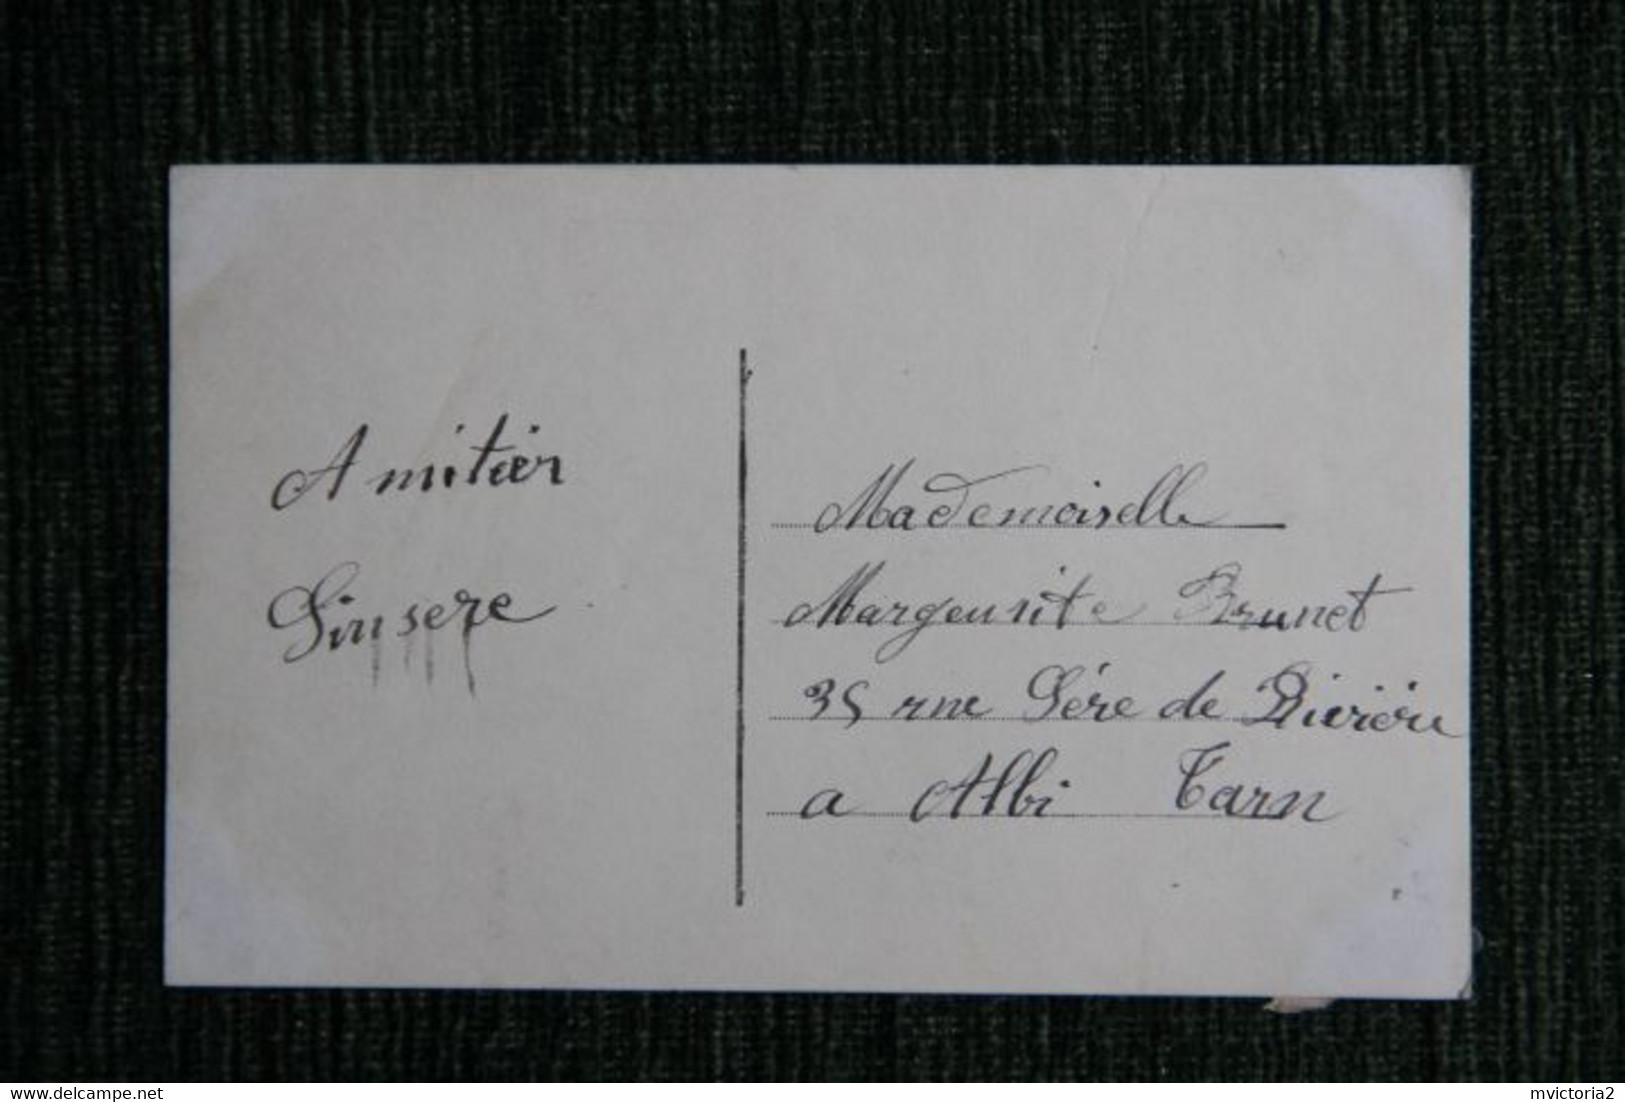 Amitiér
Sinsere
Mademoiselle
Margeurite Brunet
35 rue Sére de Rivière
a Albi Tarn
www.delcampe.net
mvictoria2